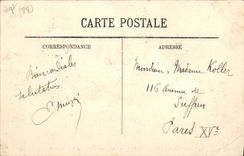 CARTE POSTALE
CORRESPONDANCE
ADRESSE
Bien cordiales
salutations
Monsieur, Madame Koller
116 Avenue de
Suffren
Paris XVe